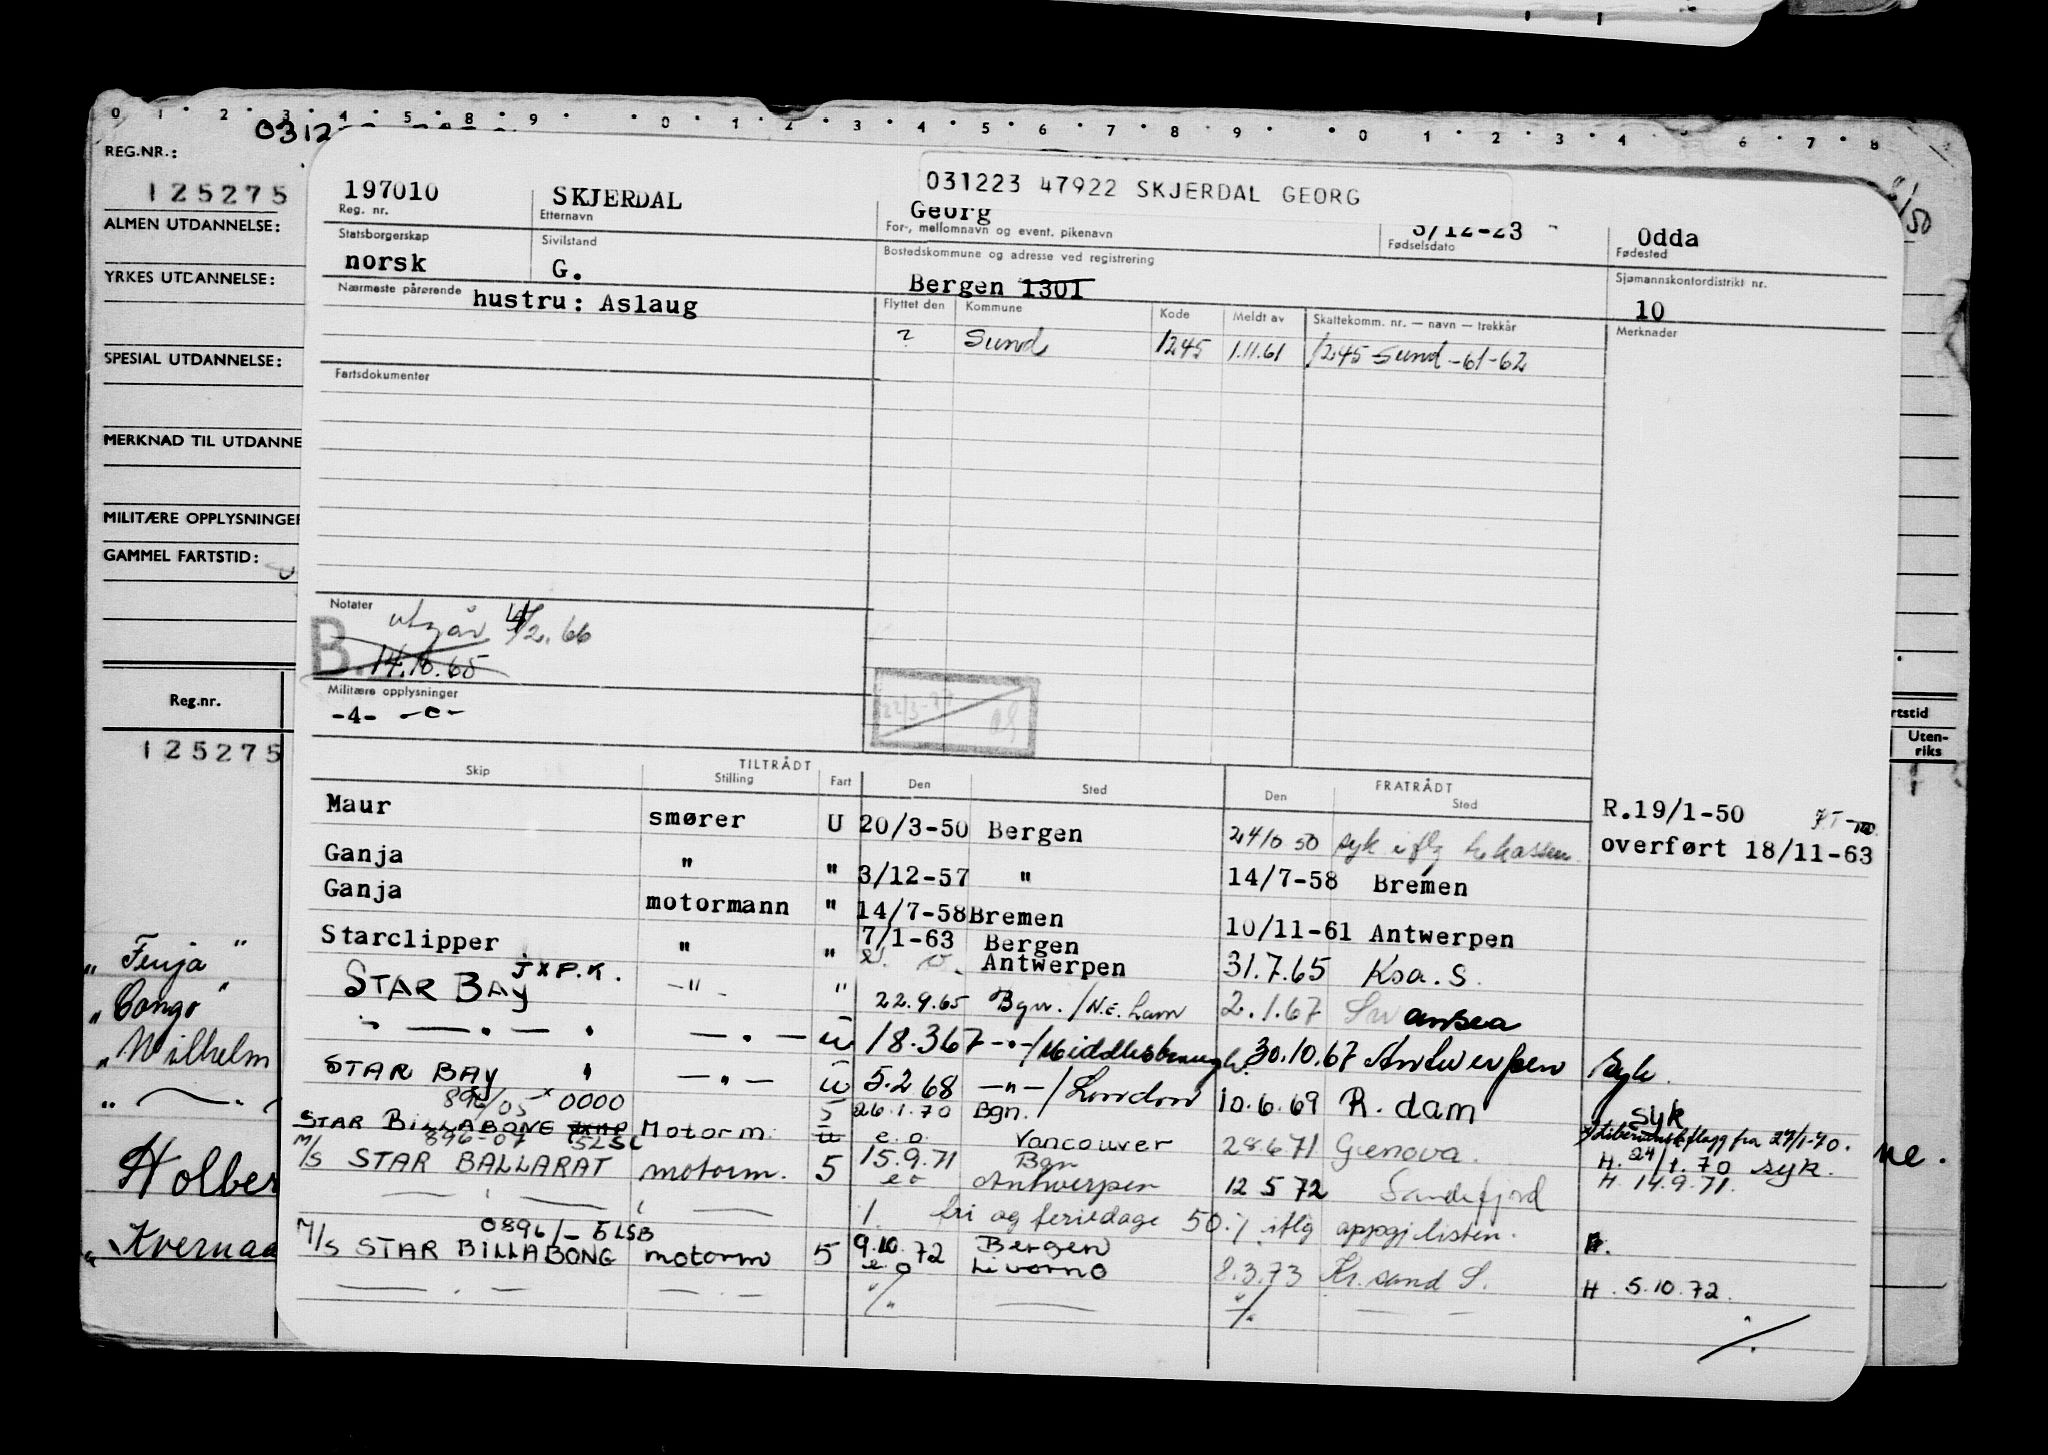 0 1 2 3 4 5 8 9 0 1 2 3 4 5 6 7 8 9 0 1 2 3 4 6 7 8
REG.NR.:
125275
ALMEN UTDANNELSE:
YRKES UTDANNELSE:
SPESIAL UTDANNELSE:
MERKNAD TIL UTDANNE
MILITÆRE OPPLYSNINGER
GAMMEL FARTSTID:
Reg.nr.
125275
rtstid
Uten-
riks
„ Fenja "
„ Congo "
„ Wilhelm
Holber
„ Kvernaa
ne.
197010 SKJERDAL 031223 47922 SKJERDAL GEORG
Georg 3/12-23 Odda
Reg. nr. Etternavn For-, mellomnavn og event. pikenavn Fødselsdato Fødested
Statsborgerskap Sivilstand Bostedskommune og adresse ved registrering Sjømannskontordistrikt nr.
norsk G. Bergen 1301 10
Nærmeste pårørende hustru: Aslaug
Flyttet den Kommune Kode Meldt av Skattekomm. nr. — navn — trekkår Merknader
? Sund 1245 1.11.61 1245 Sund -61-62
Fartsdokumenter
Notater
utgår 4/2.66
B. 14.10.65
Militære opplysninger
-4- -c-
22/3-77
TILTRÅDT FRATRÅDT
Skip Stilling Fart Den Sted Den Sted
R.19/1-50
overført 18/11-63
Maur smører U 20/3-50 Bergen 24/6 50 syk iflg
Ganja " " 3/12-57 " 14/7-58 Bremen
Ganja motormann " 14/7-58 Bremen 10/11-61 Antwerpen
Starclipper " " 7/1-63 Bergen
Antwerpen 31.7.65 Ksa. S.
STAR BAY JXPK. -"- " 22.9.65 Bgn./N.E. Ham 2.1.67 Swansea
" — " — " — " — u 18.3 67 -"-/Middlesbrough. 30.10.67 Antwerpen syk.
STAR BAY " — " — u 5.2 68 —"—/London 10.6.69 R.dam syk
896/05 x 0000
STAR BILLABONG Motorm. 5 26.1.70 Bgn.
e.o. Vancouver 28.6 71 Genova. x) Liberiansk flagg fra 27/1-70.
H. 24/1.70 syk.
896-07 5LSC
M/S STAR BALLARAT motorm. 5 15.9.71 Bgn
eo Antwerpen 12 5 72 Sandefjord H 14.9.71.
1. fri og feriedage 50.% iflg oppgj.listen.
0896/- 5LSB
M/S STAR BILLABONG motorm 5 9.10.72 Bergen
e.o Livorno 8.3.73 Kr.sand S. H. 5.10.72.